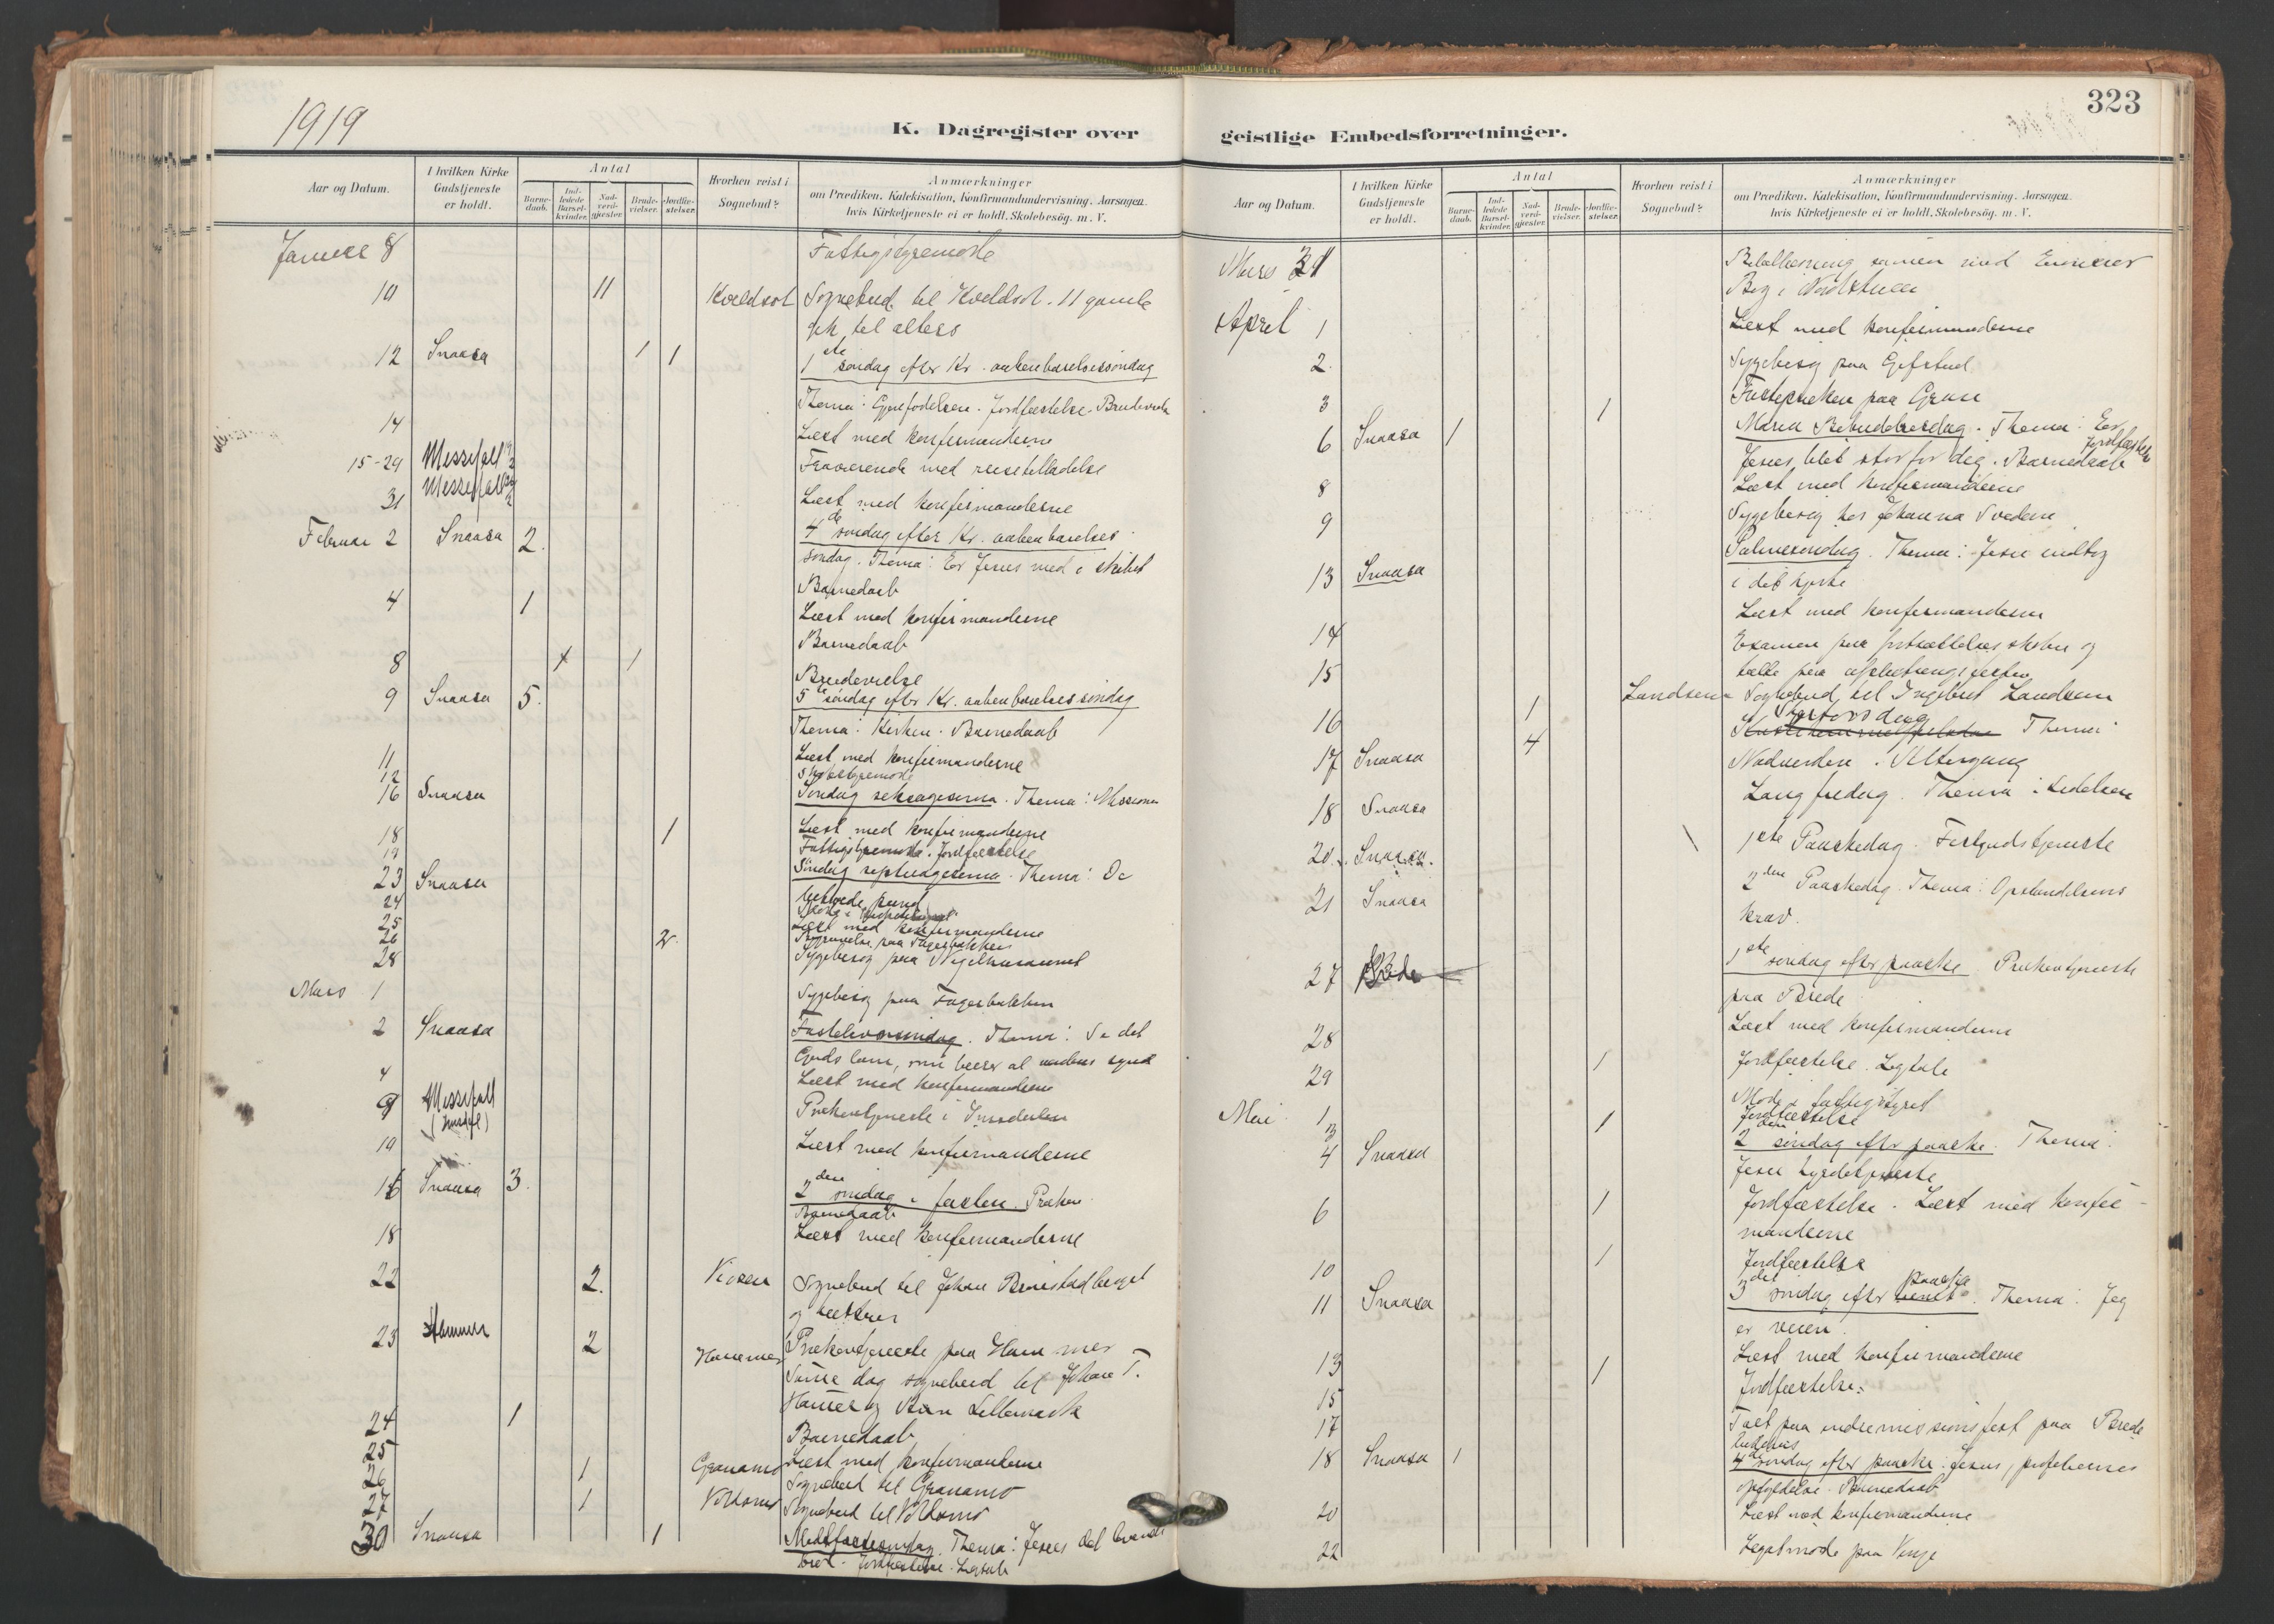 1919
K. Dagregister over
Aar og Datum.
I hvilken Kirke Gudstjeneste er holdt.
Antal
Barne-daab.
Ind-ledede Barsel-kvinder.
Nad-verd-gjester.
Brude-vielser.
Jordfæ-stelser.
Hvorhen reist i Sognebud?
Anmærkninger
om Prædiken. Katekisation, Konfirmandundervisning. Aarsagen
hvis Kirketjeneste ei er holdt. Skolebesög. m. V.
Januar 8 Fattigstyremöte
10 11 Kveldsol Sognebud til Kveldsol. 11 gamle
gik til alters
12 Snaasa 1 1 1ste söndag efter Kr. aabenbarelsessöndag
Thema: Jordfæstelse. Brudevielse
14 Læst med konfirmanderne
15-29 Messefall Fraværende med reisetilladelse
31 Messefall Læst med konfirmanderne
Februar 2 Snaasa 2. 4de söndag efter Kr. aabenbarelses
söndag. Thema: Er Jesus med i skibet
Barnedaab
4 1 Læst med konfirmanderne
Barnedaab
8 1 Brudevielse
9 Snaasa 5. 5te söndag efter Kr. aabenbarelsessöndag
Thema: Kirken. Barnedaab
11 Læst med konfirmanderne
12 Skolestyremöde
16 Snaasa Söndag seksagesima. Thema: Missionen
18 1 Læst med konfirmanderne
19 Fattigstyremöte. Jordfæstelse
23 Snaasa Söndag septuagesima. Thema: De
betroede pund
24
25 Læst med konfirmanderne
26 2. Begravelse paa Fagerbakken
28 Sygebesög paa
Mars 1 Sygebesög paa Fagerbakken
2 Snaasa Fastelavnssöndag. Thema: Se det
Guds lam, som bærer al verdens synd
4 Læst med konfirmanderne
9 Messefall Prækentjeneste i
10 Læst med konfirmanderne
16 Snaasa 3. 2den söndag i fasten. Præken
Barnedaab
18 Læst med konfirmanderne
22 2. Sognebud til Johan
og hustru
23 Hammer 2 Prækentjeneste paa Hammer
Hammer Samme dag sognebud til Johan T.
Hammer og
24 1 Barnedaab
25 Læst med konfirmanderne
26 1 Granamo Sognebud til Granamo
27 1 Sognebud til
30 Snaasa 1 Midtfastesöndag. Thema: Jesus det levende
bröd. Jordfæstelse. Ligtale
323
geistlige Embedsforretninger.
Aar og Datum.
I hvilken Kirke Gudstjeneste er holdt.
Antal
Barne-daab.
Ind-ledede Barsel-kvinder.
Nad-verd-gjester.
Brude-vielser.
Jordfæ-stelser.
Hvorhen reist i Sognebud?
Anmærkninger
om Prædiken. Katekisation, Konfirmandundervisning. Aarsagen
hvis Kirketjeneste ei er holdt. Skolebesög. m. V.
Mars 31 Bibellæsning sammen med
April 1 Læst med konfirmanderne
2. Sygebesög paa Gifstad
3 1 Fastepræken paa Grane
6 Snaasa 1 Maria Bebudelsesdag. Thema: Er
Jesus blit stor for dig. Barnedaab Jordfæstelse
8 Læst med konfirmanderne
9 Sygebesög hos Johanna
13 Snaasa Palmesöndag. Thema: Jesu indtog
i dit hjerte
14 Læst med konfirmanderne
15 Examen paa fortsættelsesskolen og
talte paa afslutningsfesten
16 1 Landsem Sognebud til Ingebret Landsem
17 Snaasa 4 Skjærtorsdag Thema:
Nadverden. Altergang
18 Snaasa Langfredag. Thema: Lidelsen
20. Snaasa. 1ste Paaskedag. Festgudstjeneste
21 Snaasa 2den Paaskedag. Thema: Opstandelsens
krav.
27 Brede 1ste söndag efter paaske. Prækentjeneste
paa Brede
28 Læst med konfirmanderne
29 1 Jordfæstelse. Ligtale
Mai 1 Möde i fattigstyret
3 1 Jordfæstelse
4 Snaasa 2den söndag efter paaske. Thema:
Jesu hyrdetjeneste
6 1 Jordfæstelse. Læst med konfir-
manderne
10 1 Jordfæstelse
11 Snaasa 3die söndag efter paaske. Thema: Jeg
er veien.
13 1 Læst med konfirmanderne
15 Jordfæstelse.
17 Talt paa indremissionsfest paa Brede
bedehus
18 Snaasa 1 4de söndag efter paaske. Jesus, profetiernes
opfyldelse. Barnedaab
20 Læst med konfirmanderne
22 Legatmöde paa Vinje